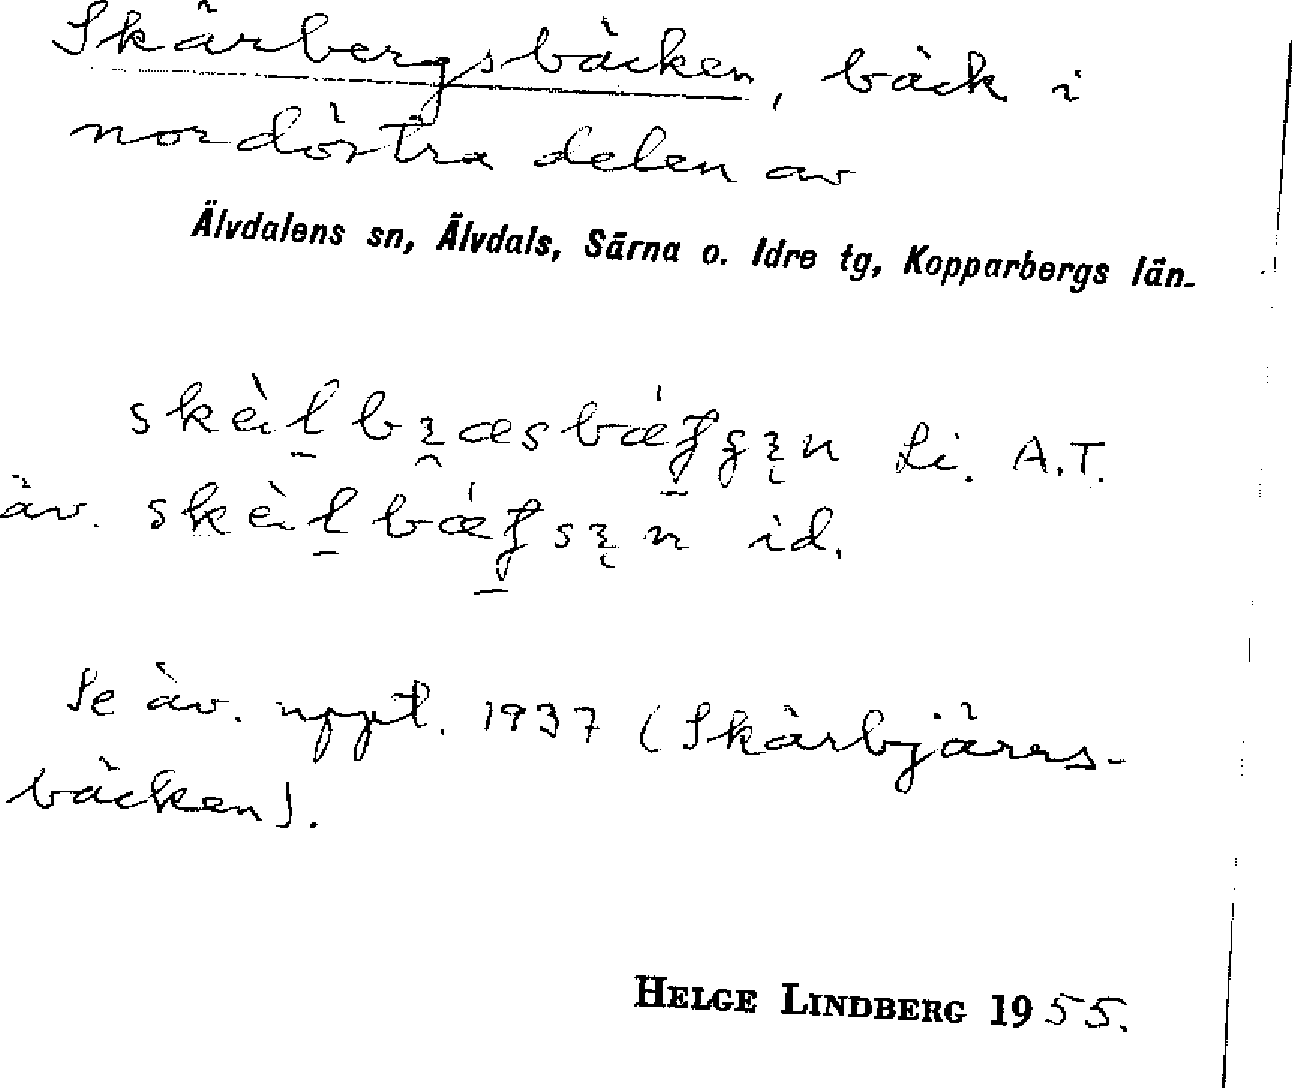 Skärbergsbäcken, bäck i
nordöstra delen av
Älvdalens sn, Älvdals, Särna o. Idre tg, Kopparbergs län.
Li. A.T.
äv. id.
Se äv. uppt. 1937 (Skärbjärs-
bäcken).
HELGE LINDBERG 1955.